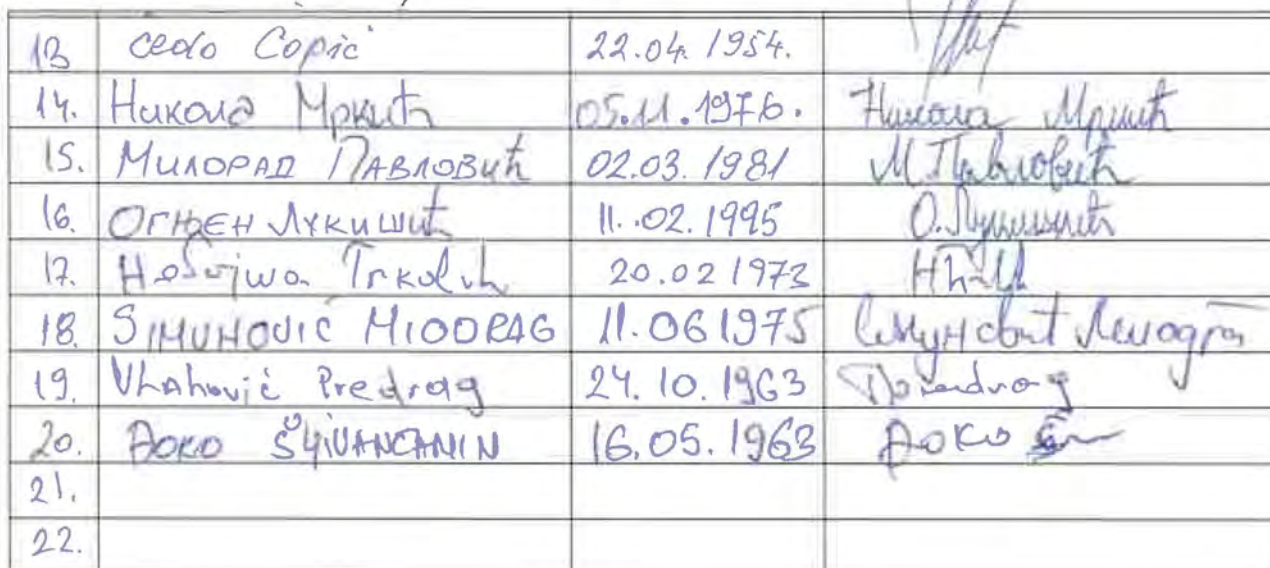 13 Cedo Copić 22.04.1954.
14. Никола Мркић 05.11.1976. Никола Мркић
15. МИЛОРАД ПАВЛОВић 02.03.1981 М Павловић
16. ОГЊЕН ЛУКИШић 11.02.1995 О. Лукишић
17. 20.02 1973
18. SIMUNOVIĆ MIODRAG 11.06 1975
19. Vlahović Predrag 24.10.1963 Predrag
20. ĐOKO 16.05.1963 ĐOKO
21.
22.